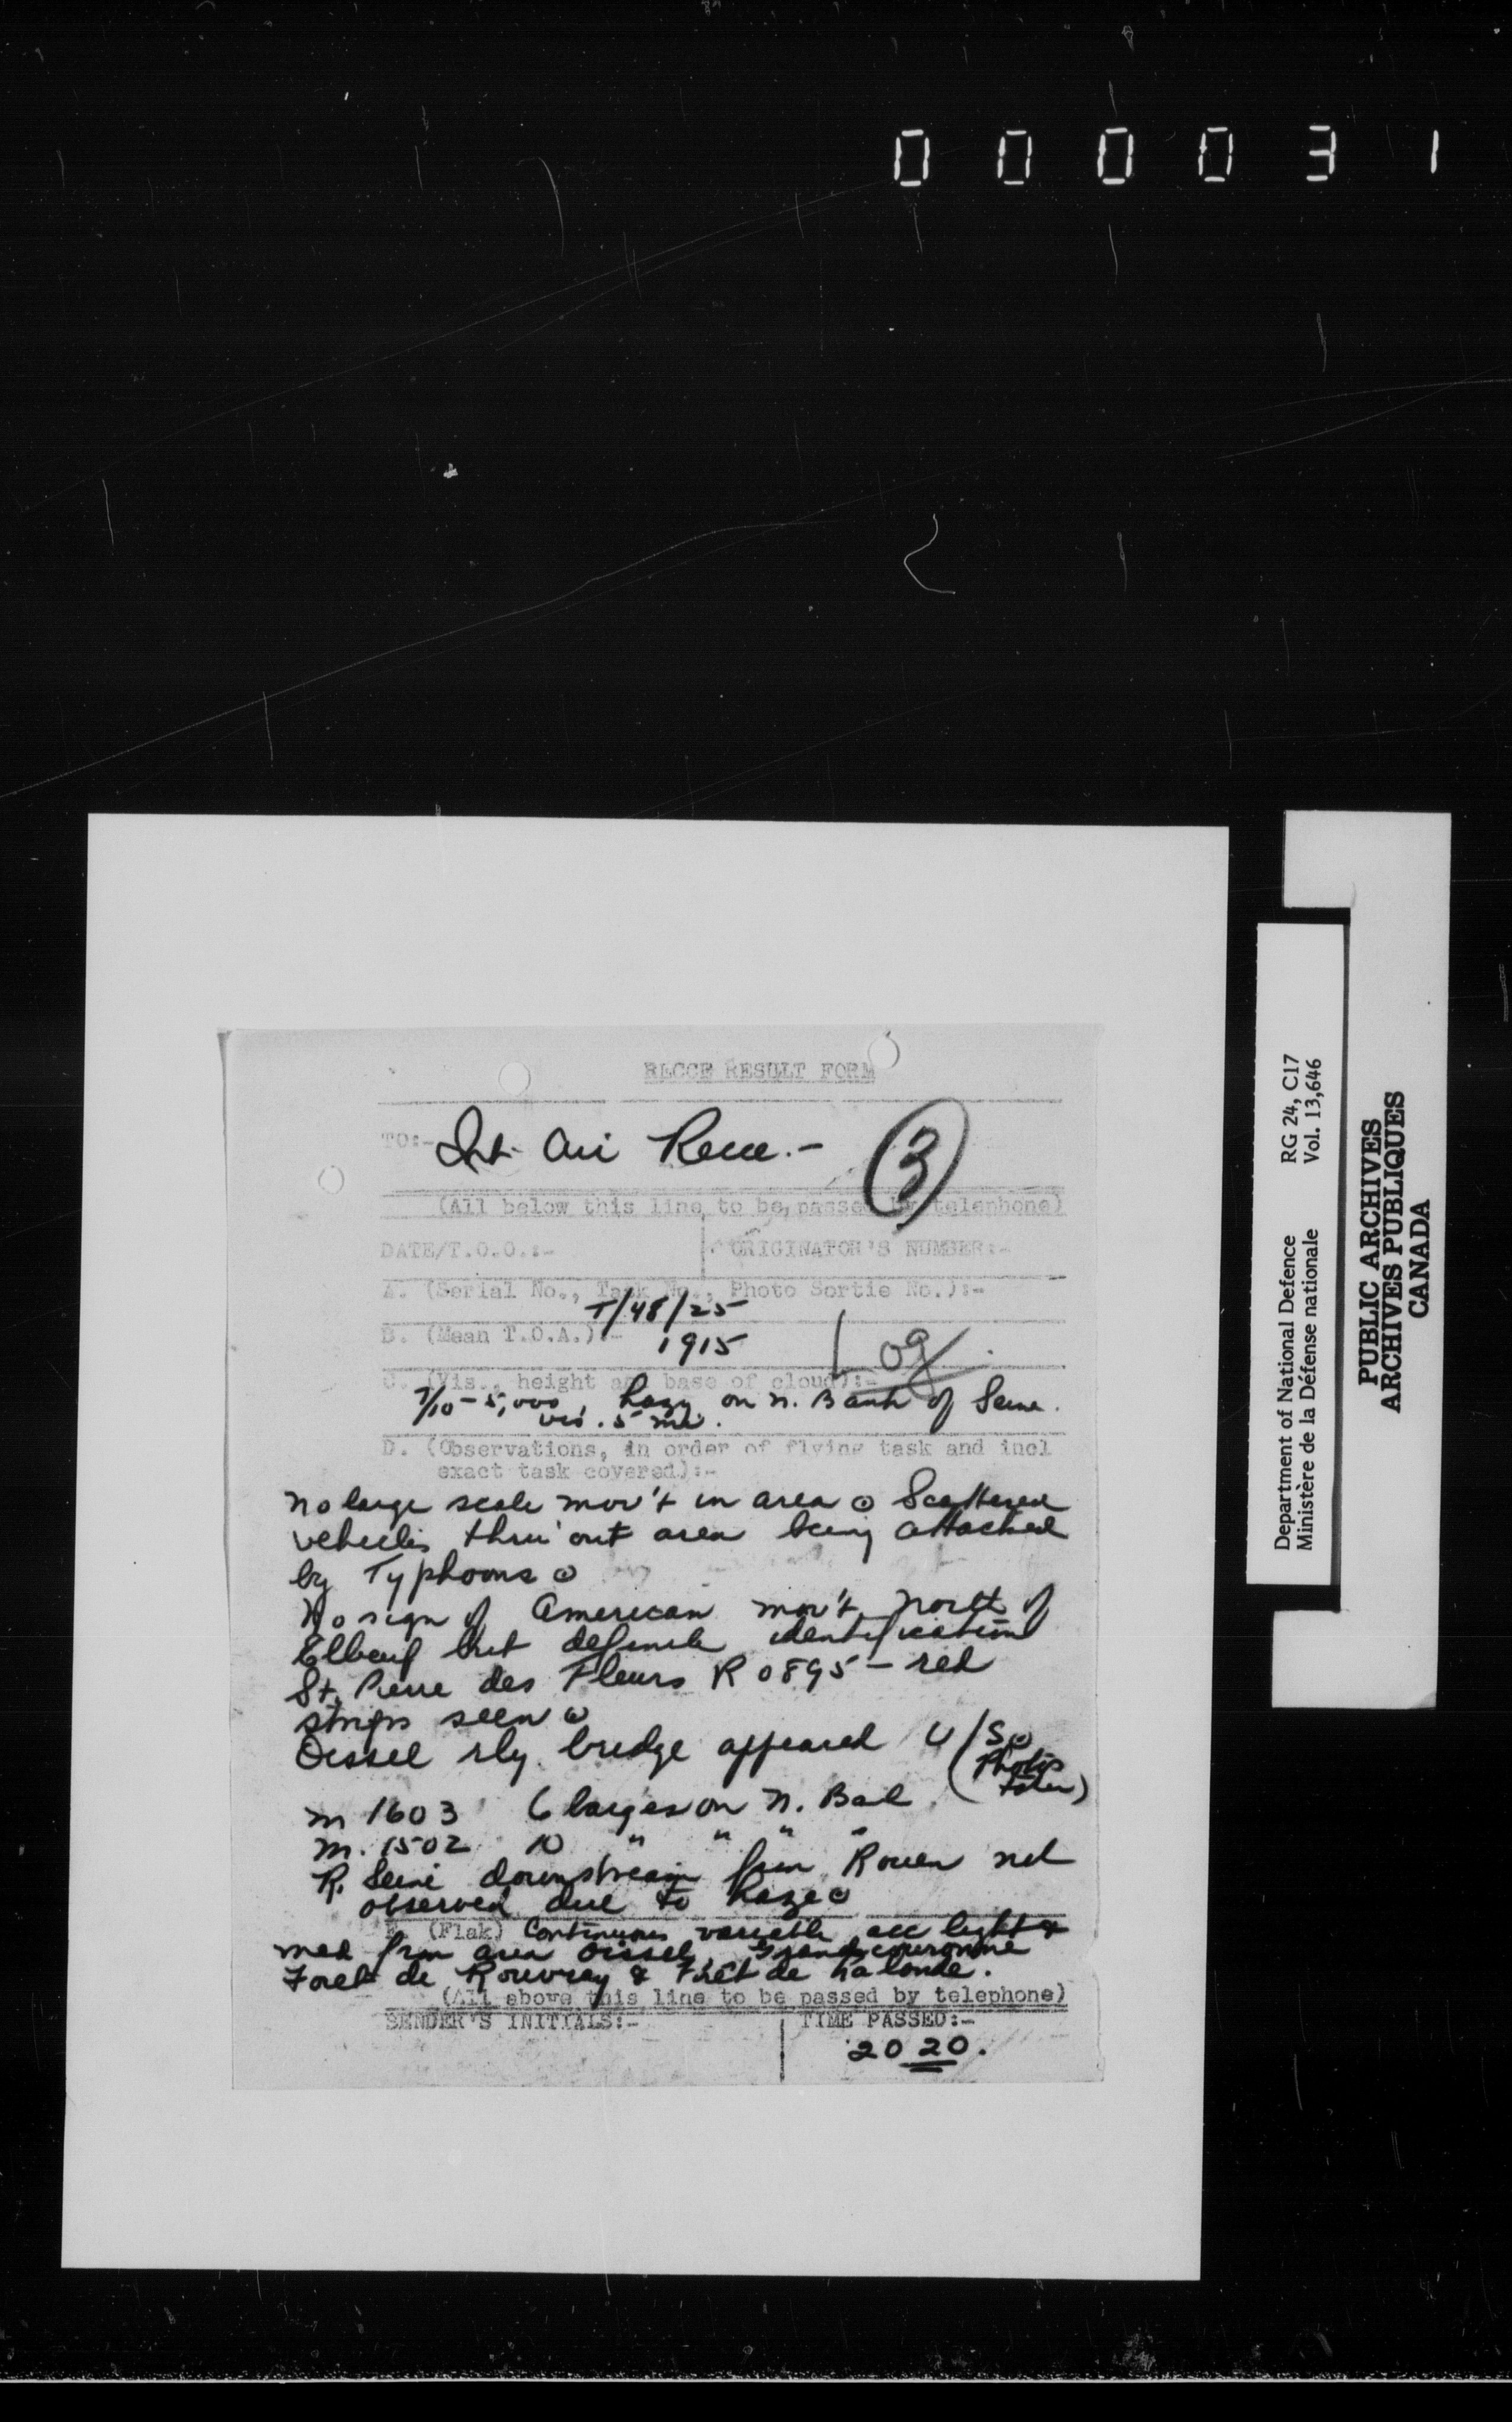 000031
RECCE RESULT FORM
TO:- Int. Air Recce.- 3
(All below this line to be passed by telephone)
DATE/T.O.O.:- ORIGINATOR'S NUMBER:-
A. (Serial No., Task No., Photo Sortie No.):-
T/48/25
B. (Mean T.O.A.):-
1915 Log
C. (Vis., height and base of cloud):-
7/10 - 5,000, hazy on N. Bank of Seine.
vis. 5 mi.
D. (Observations, in order of flying task and incl
exact task covered):-
No large scale mov't in area ⊙ Scattered
vehicles thru'out area being attacked
by Typhoons ⊙
No sign of American mov't north of
Elbeuf but definite identification
St. Pierre des Fleurs R 0895 - red
strips seen ⊙
Oissel rly. bridge appeared U/S ⊙
(Photos
taken)
M 1603 6 barges on N. Bank
M. 1502 10 " " " "
R. Seine downstream from Rouen not
observed due to haze ⊙
(Flak) Continuous variable acc light &
med from area Oissel, Grand couronne
Foret de Rouvray & Foret de La Londe.
(All above this line to be passed by telephone)
SENDER'S INITIALS:- TIME PASSED:-
2020.
Department of National Defence RG 24, C17
Ministère de la Défense nationale Vol. 13,646
PUBLIC ARCHIVES
ARCHIVES PUBLIQUES
CANADA